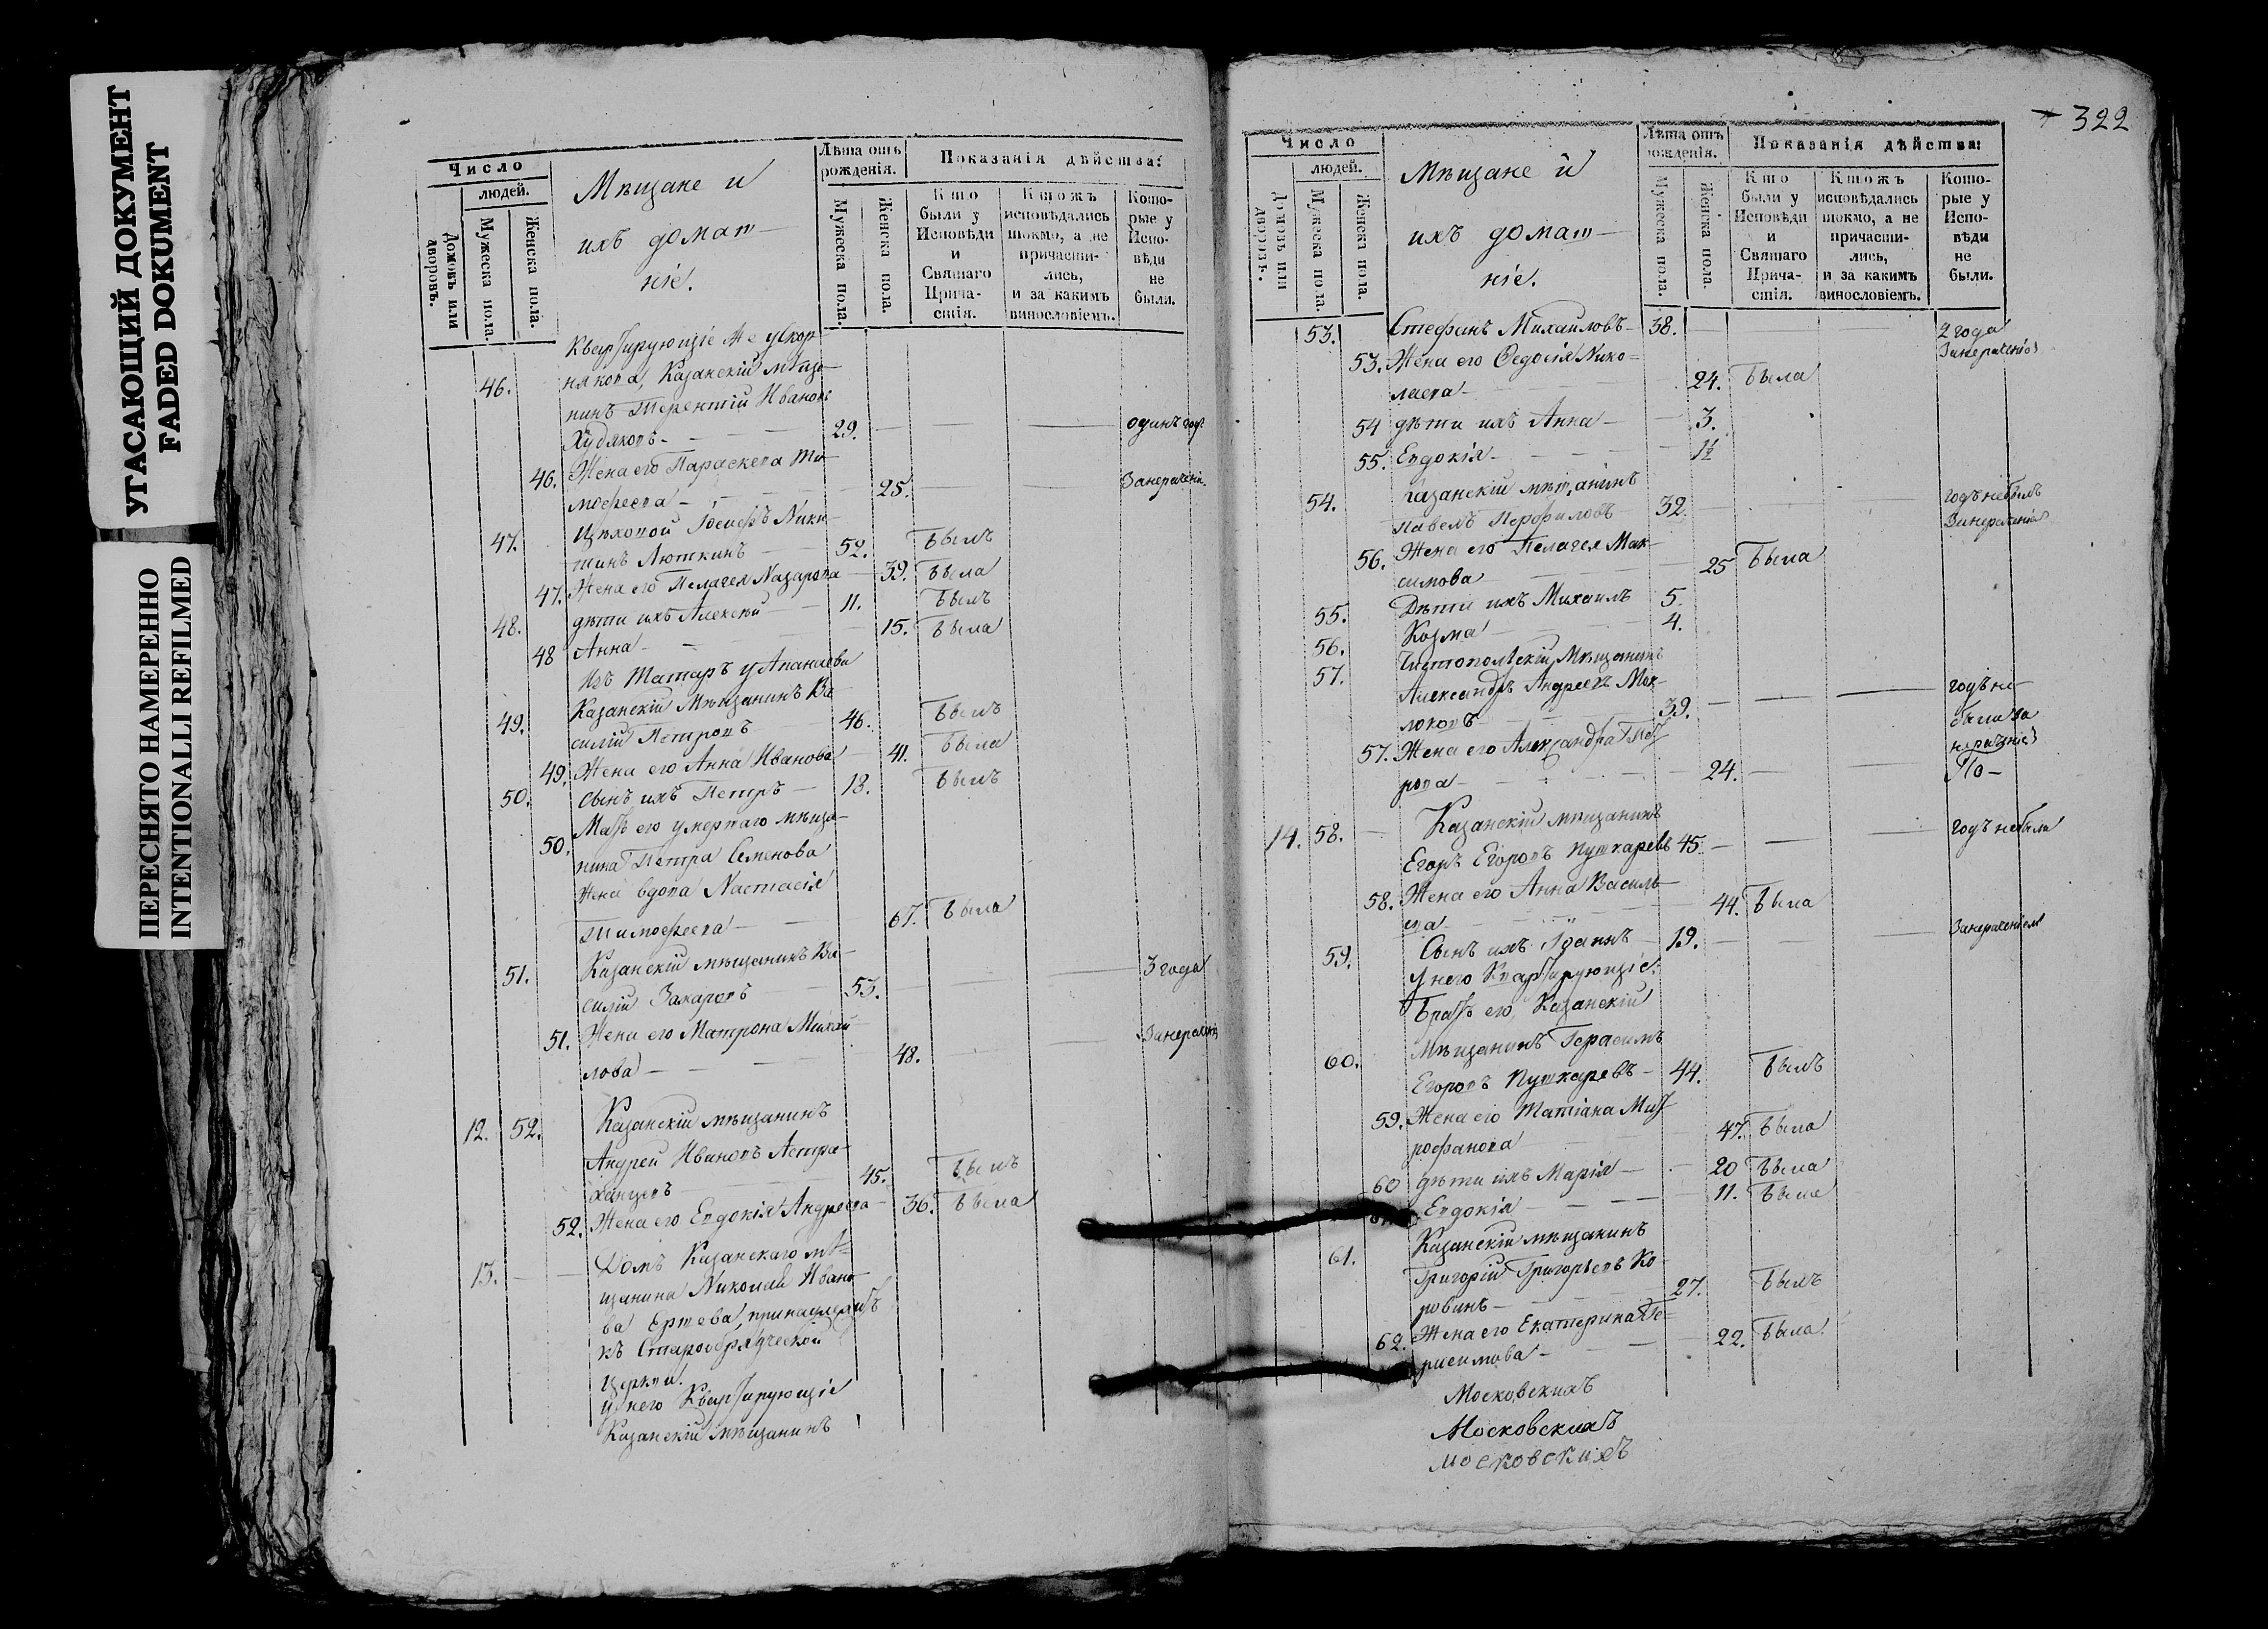 УГАСАЮЩИЙ ДОКУМЕНТ
FADED DOKUMENT
ПЕРЕСНЯТО НАМЕРЕННО
INTENTIONALLI REFILMED
Число
людей.
Домовъ или дворовъ.
Мужеска пола.
Женска пола.
Мѣщане и
ихъ домаш-
ніе.
Лѣта отъ рожденія.
Мужеска пола.
Женска пола.
Показанія дѣйства:
Кто были у Исповѣди и Святаго Причастія.
Ктожъ исповѣдались токмо, а не причасти-лись, и за какимъ винословіемъ.
Кото-рые у Испо-вѣди не были.
Квартирующіе
46. Казанскій мѣща-
нинъ Терентій Ивановъ
Худяковъ - 29. одинъ годъ
46. Жена его Параскева Ти-
мофеева - 25. Занерачені.
47. Цеховой Іосифъ Ники-
тинъ Люткинъ 52. былъ
47. Жена его Пелагея Назарова 39. была
48. дѣти ихъ Алексей 11. былъ
48 Анна 15. была
Изъ Татаръ у Ананьева
49. Казанскій Мѣщанинъ Ва-
силій Петровъ 46. былъ
49. Жена его Анна Иванова 41. была
50. Сынъ ихъ Петръ 13. былъ
50. Мать его умершаго мѣща-
нина Петра Семенова
жена вдова Настасія
Тимофеева 67. была
51. Казанскій мѣщанинъ Ва-
силій Захаровъ 53. 3 года
51. Жена его Матрона Михай-
лова - 48.
12. 52. Казанскій мѣщанинъ
Андрей Ивановъ Астра-
ханцевъ 45. былъ
52. Жена его Евдокія Андреева 36. была
13. Домъ Казанскаго мѣ-
щанина Николай Ивано-
ва Ертева, принадлежитъ
къ Старообрядческой
Церкви.
У него Квартирующіе
Казанскій мѣщанинъ
322
Число
людей.
Домовъ или дворовъ.
Мужеска пола.
Женска пола.
Мѣщане и
ихъ домаш-
ніе.
Лѣта отъ рожденія.
Мужеска пола.
Женска пола.
Показанія дѣйства:
Кто были у Исповѣди и Святаго Прича-стія.
Ктожъ исповѣдались токмо, а не причасти-лись, и за какимъ винословіемъ.
Кото-рые у Испо-вѣди не были.
53. Стефанъ Михайловъ 38. 2 года
53. Жена его Ѳедосія Нико-
лаева 24. была
54 дѣти ихъ Анна 3.
55. Евдокія 1½
54. Казанскій мѣщанинъ годъ небылъ
Павелъ Перфиловъ 32.
56. Жена его Пелагея Мак-
симова 25 была
55. Дѣти ихъ Михаилъ 5.
56. Козма 4.
57. Чистопольскій Мѣщанинъ
Александръ Андреевъ Мок-
локовъ 39. годъ не
57. Жена его Александра Пет-
рова 24.
14. 58. Казанскій мѣщанинъ
Егоръ Егоровъ Пушкаревъ 45. годъ небыли
58. Жена его Анна Василь-
ева 44. была
59. Сынъ ихъ Іоаннъ 19.
У него Квартирующіе
Братъ его, Казанскій
60. мѣщанинъ Герасимъ
Егоровъ Пушкаревъ 44. былъ
59. Жена его Татіана Мит-
рофанова 47. была
60 дѣти ихъ Марія 20 была
Евдокія 11. была
61. Казанскій мѣщанинъ
Григорій Григорьевъ Ко-
ровинъ 27. былъ
62. Жена его Екатерина Ге-
расимова 22. была
Московскихъ
Московскихъ
московскихъ